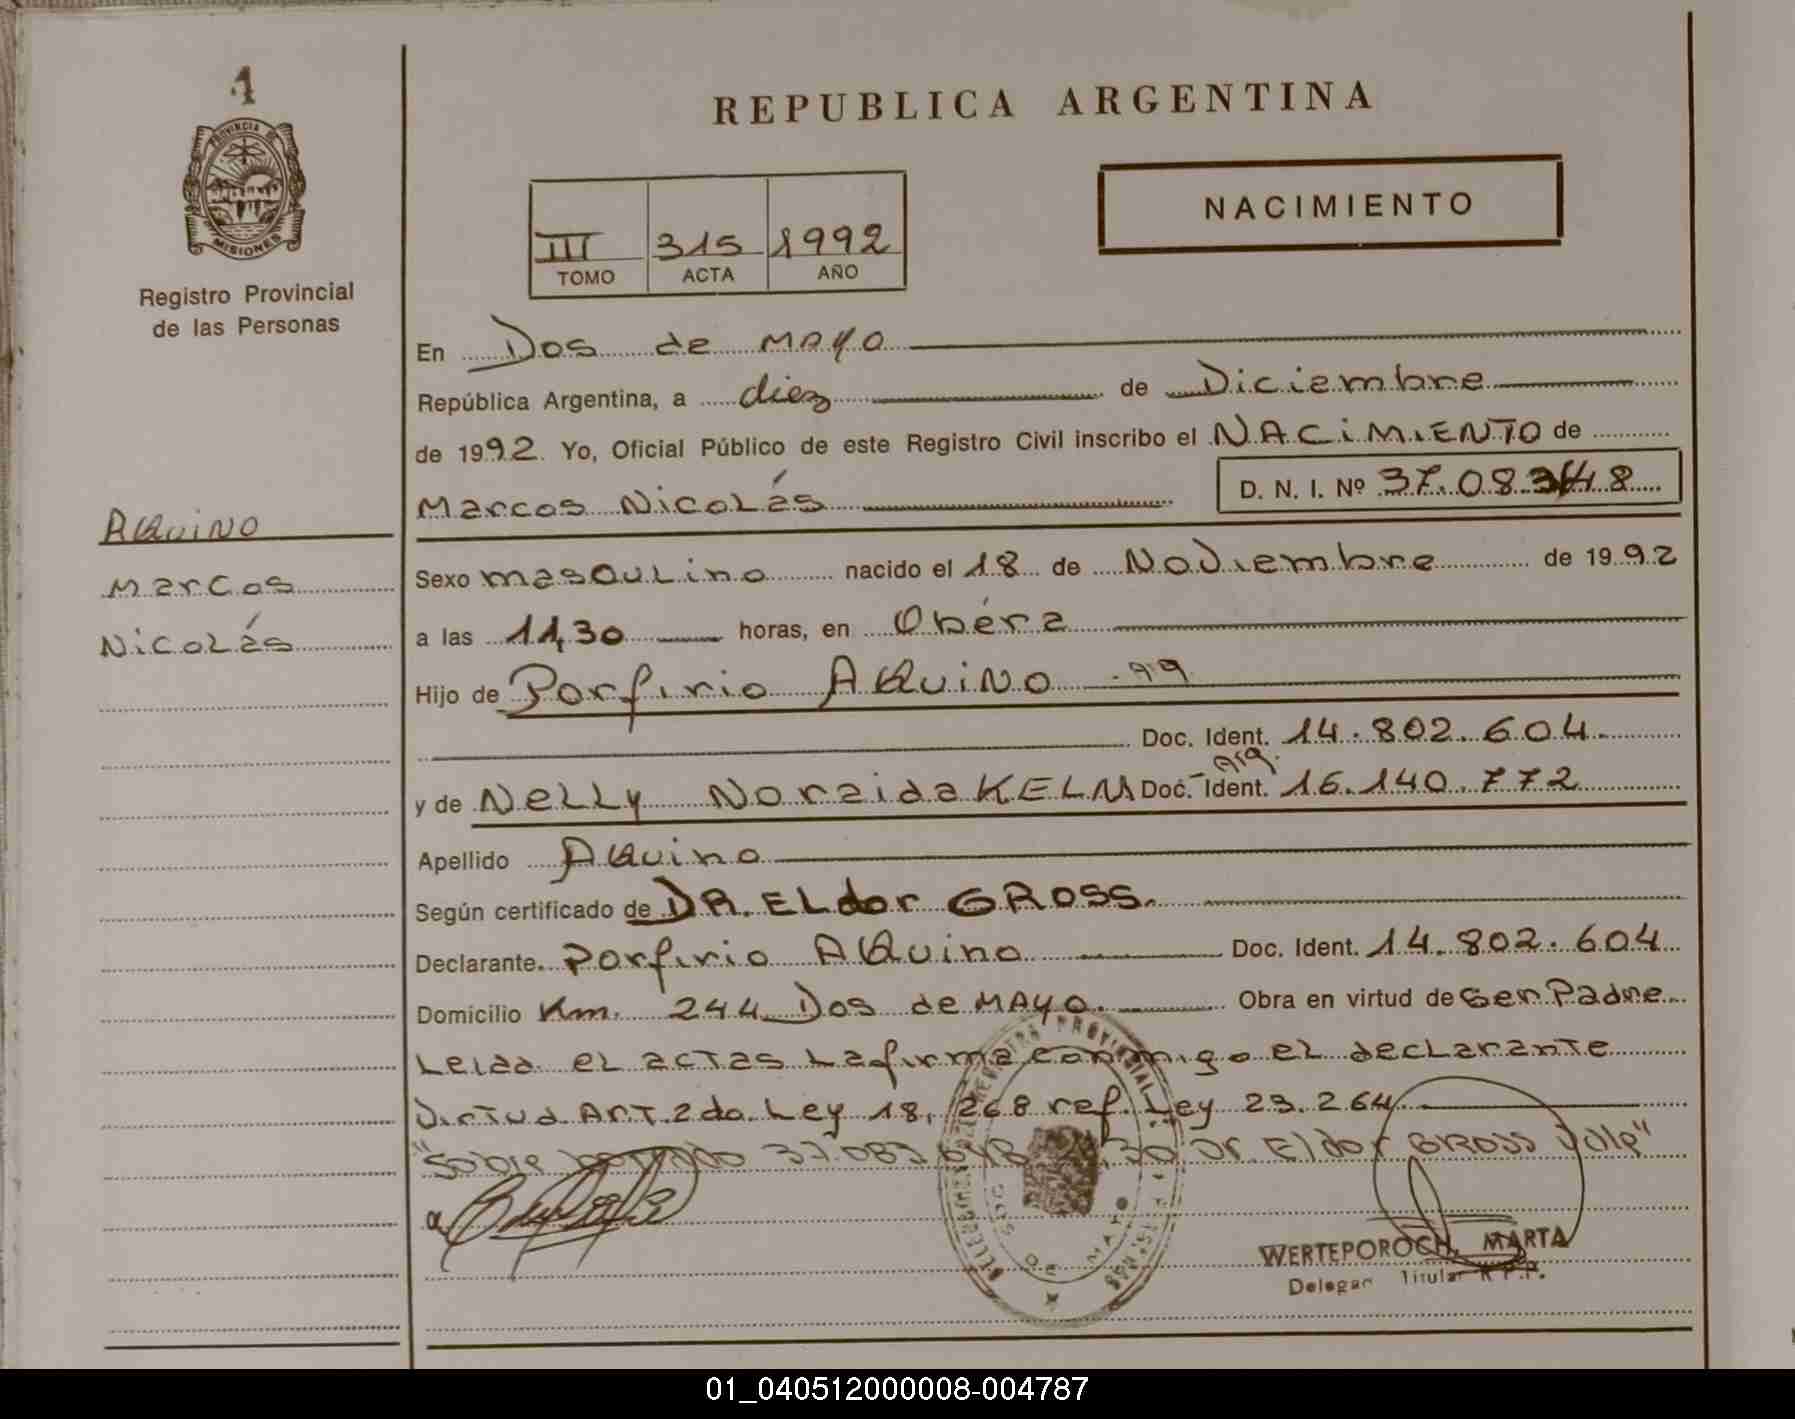 1
PROVINCIA DE
MISIONES
Registro Provincial
de las Personas
REPUBLICA ARGENTINA
NACIMIENTO
III 315 1992
TOMO ACTA AÑO
En Dos de Mayo
República Argentina, a diez de Diciembre
de 1992 Yo, Oficial Público de este Registro Civil inscribo el NACIMIENTO de
Marcos Nicolás D. N. I. Nº
AQuiNO
Marcos
Nicolás
Sexo masculino nacido el 18 de Noviembre de 1992
a las 11,30 horas, en Oberá
Hijo de Porfirio AQuiNo
Doc. Ident. 14.802.604
arg.
y de Nelly Noraida KELM Doc. Ident. 16.140.772
Apellido AQuino
Según certificado de DR. ELdor GROSS.
Declarante Porfirio AQuino Doc. Ident. 14.802.604
Domicilio Km. 244 Dos de MAyo. Obra en virtud de Ser Padre
Leida el actas La firma conmigo el declarante
Virtud ART. 2do. Ley 18.268 ref. Ley 23.264
"Sobre borrado 37.083 Dr. Eldor GROSS Vale"
WERTEPOROCH, MARTA
Titular R.P.P.
01_040512000008-004787